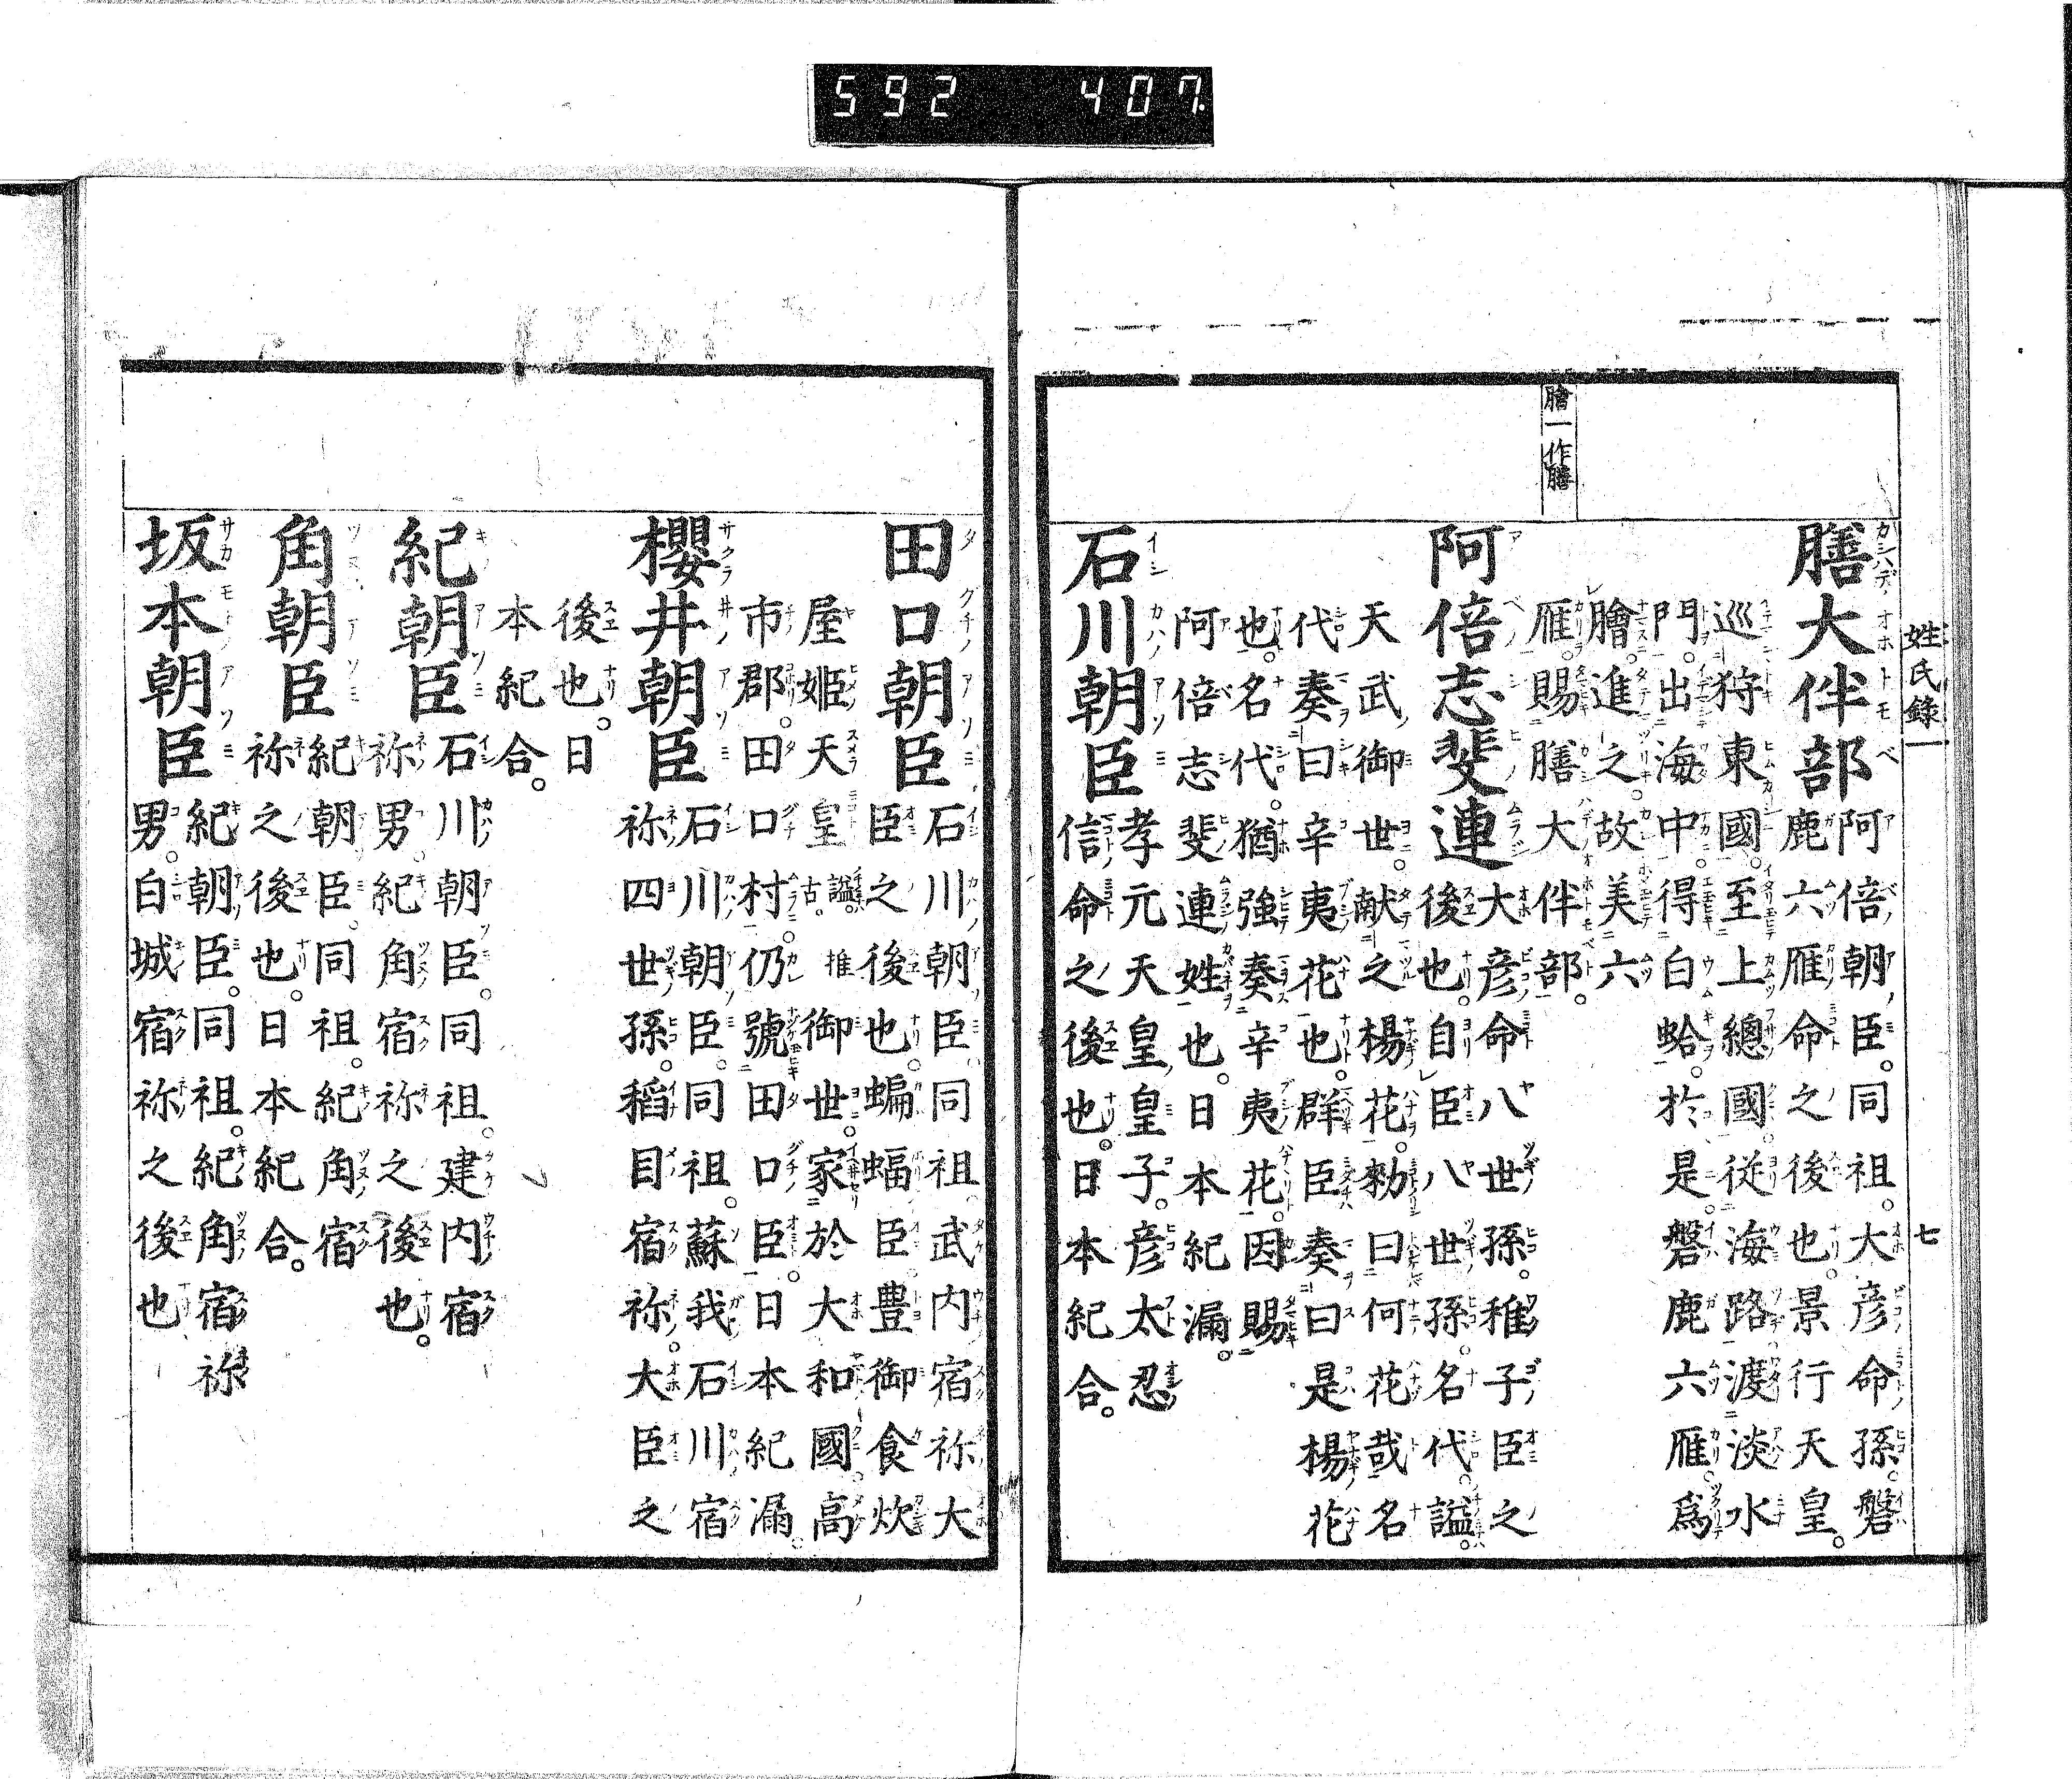 592 407
姓氏錄一 七
膾一作膳
膳大伴部
阿倍朝臣。同祖。大彦命孫。磐
鹿六雁命之後也。景行天皇。
巡狩東國。至上總國。從海路。渡淡水
門。出海中。得白蛤。於是。磐鹿六雁。爲
膾。進之。故美六
雁。賜膳大伴部。
阿倍志斐連
大彦命八世孫。稚子臣之
後也。自臣八世孫。名代。謚。
天武。御世。献之楊花。勅曰何花哉名
代奏曰辛夷花也。群臣奏曰是楊花
也。名代。猶強奏辛夷花。因賜
阿倍志斐連姓也。日本紀漏。
石川朝臣
孝元天皇。皇子。彦太忍
信命之後也。日本紀合。
田口朝臣
石川朝臣同祖。武内宿祢大
臣之後也。蝙蝠臣豊御食炊
屋姫天皇謚。推古。御世。家於大和國。高
市郡。田口村。仍號田口臣。日本紀漏。
櫻井朝臣
石川朝臣。同祖。蘇我石川宿
祢四世孫。稻目宿祢。大臣之
後也。日
本紀合。
紀朝臣
石川朝臣。同祖。建内宿
祢男。紀角宿祢之後也。
角朝臣
紀朝臣。同祖。紀角宿
祢之後也。日本紀合。
坂本朝臣
紀朝臣。同祖。紀角宿祢
男。白城宿祢之後也